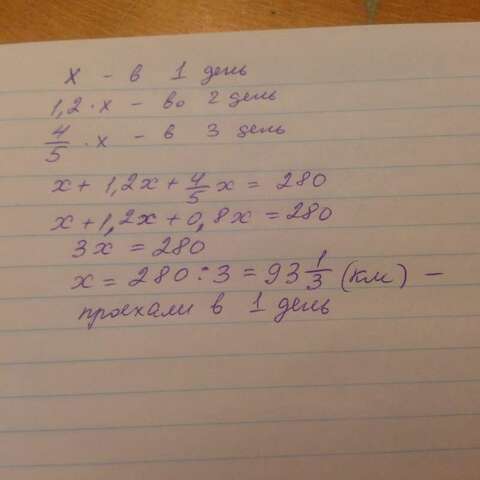 x - в 1 день
1,2 · x - во 2 день
4/5 · x - в 3 день
x + 1,2x + 4/5 x = 280
x + 1,2x + 0,8x = 280
3x = 280
x = 280 : 3 = 93 1/3 (км) -
проехали в 1 день